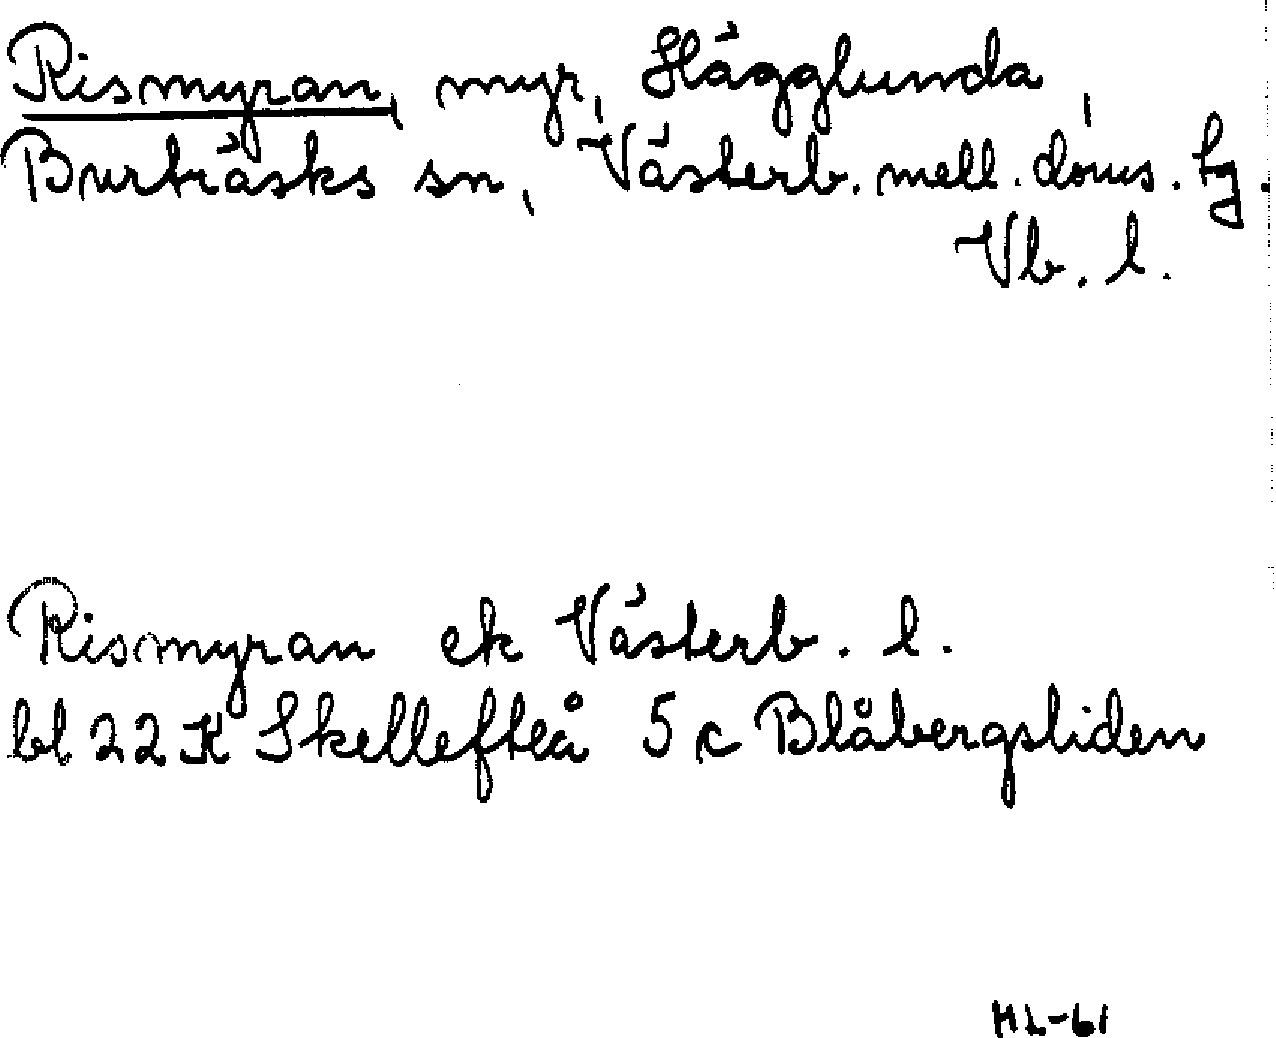 Rismyran, myr, Hägglunda,
Burträsks sn, Västerb. mell. doms. tg.
Vb. l.
Rismyran ek Västerb. l.
bl 22 K Skellefteå 5 c Blåbergsliden
HL-61